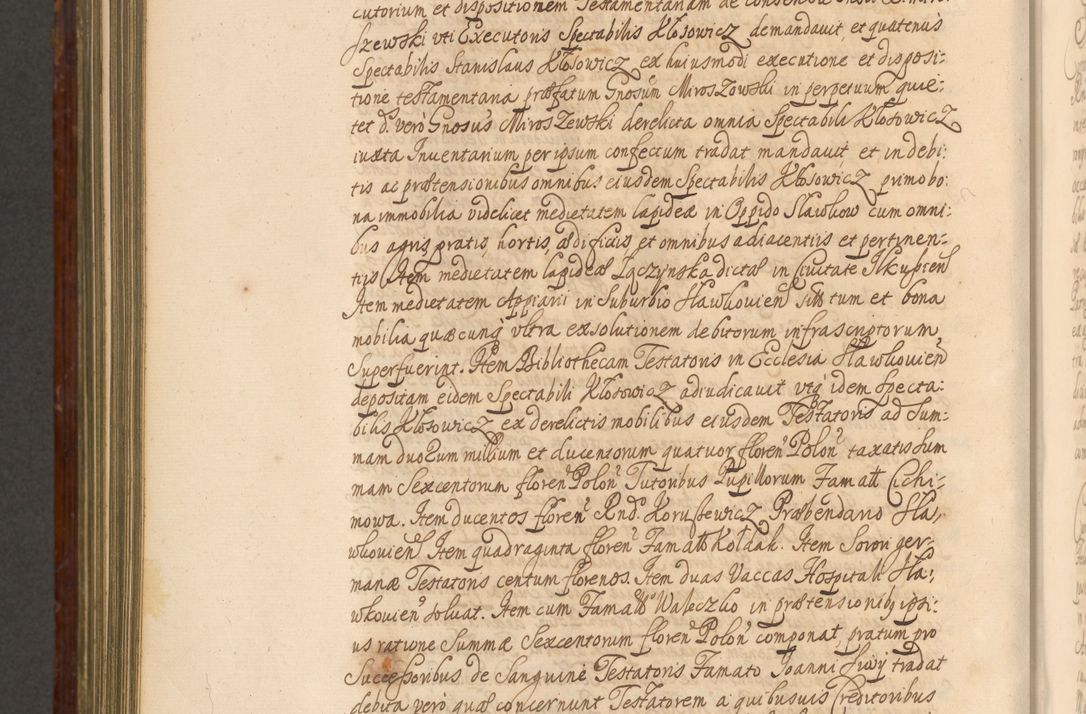 cutorium et dispositionem Testamentariam de consensu
szewski uti Executoris Spectabilis Kłosowicz demandavit et quatenus
Spectabilis Stanislaus Kłosowicz ex huiusmodi executione et disposi:
tione testamentaria præfatum Gnosum Miroszowski in perpetuum quie:
tet d. verò Gnosus Miroszewski derelicta omnia Spectabili Kłosowicz
iuxta Inventarium per ipsum confectum tradat mandavit et in debi:
tis ac prætensionibus omnibus eiusdem Spectabilis Kłosowicz primo bo:
na immobilia videlicet medietatem lapideæ in Oppido Slawkow cum omni:
bus agris, pratis, hortis, ædificiis et omnibus adiacentiis et pertinen:
tijs Item medietatem lapideæ Lączynska dictæ in Civitate Ilkusien
Item medietatem Appiarii in Suburbio Slawkovien situm et bona
mobilia quæcunq ultra exsolutionem debitorum infrascriptorum
superfuerint. Item Bibliothecam Testatoris in Ecclesia Slawkovien
depositam eidem Spectabili Kłosowicz adiudicavit utq idem Specta:
bilis Kłosowicz ex derelictis mobilibus eiusdem Testatoris ad Sum:
mam duorum millium et ducentorum quatuor floren Polon taxatis sum
mam Sexcentorum floren Polon Tutoribus Pupillorum Famatt Cichi:
mowa. Item ducentos floren Rnd. Korusiewicz Præbendario Sla:
wkovien Item quadraginta floren Famatto Kołdak. Item Sorori ger:
manæ Testatoris centum florenos. Item duas Vaccas Hospitali Sla:
wkovien solvat. Item cum Famatto Waleczko in prætensionibq ipsi:
us ratione Summæ Sexcentorum floren Polon componat, pratum pro
Successoribus de Sanguine Testatoris Famato Joanni Siwy tradat
debita verò quæ concernunt Testatorem a quibusvis Creditoribus